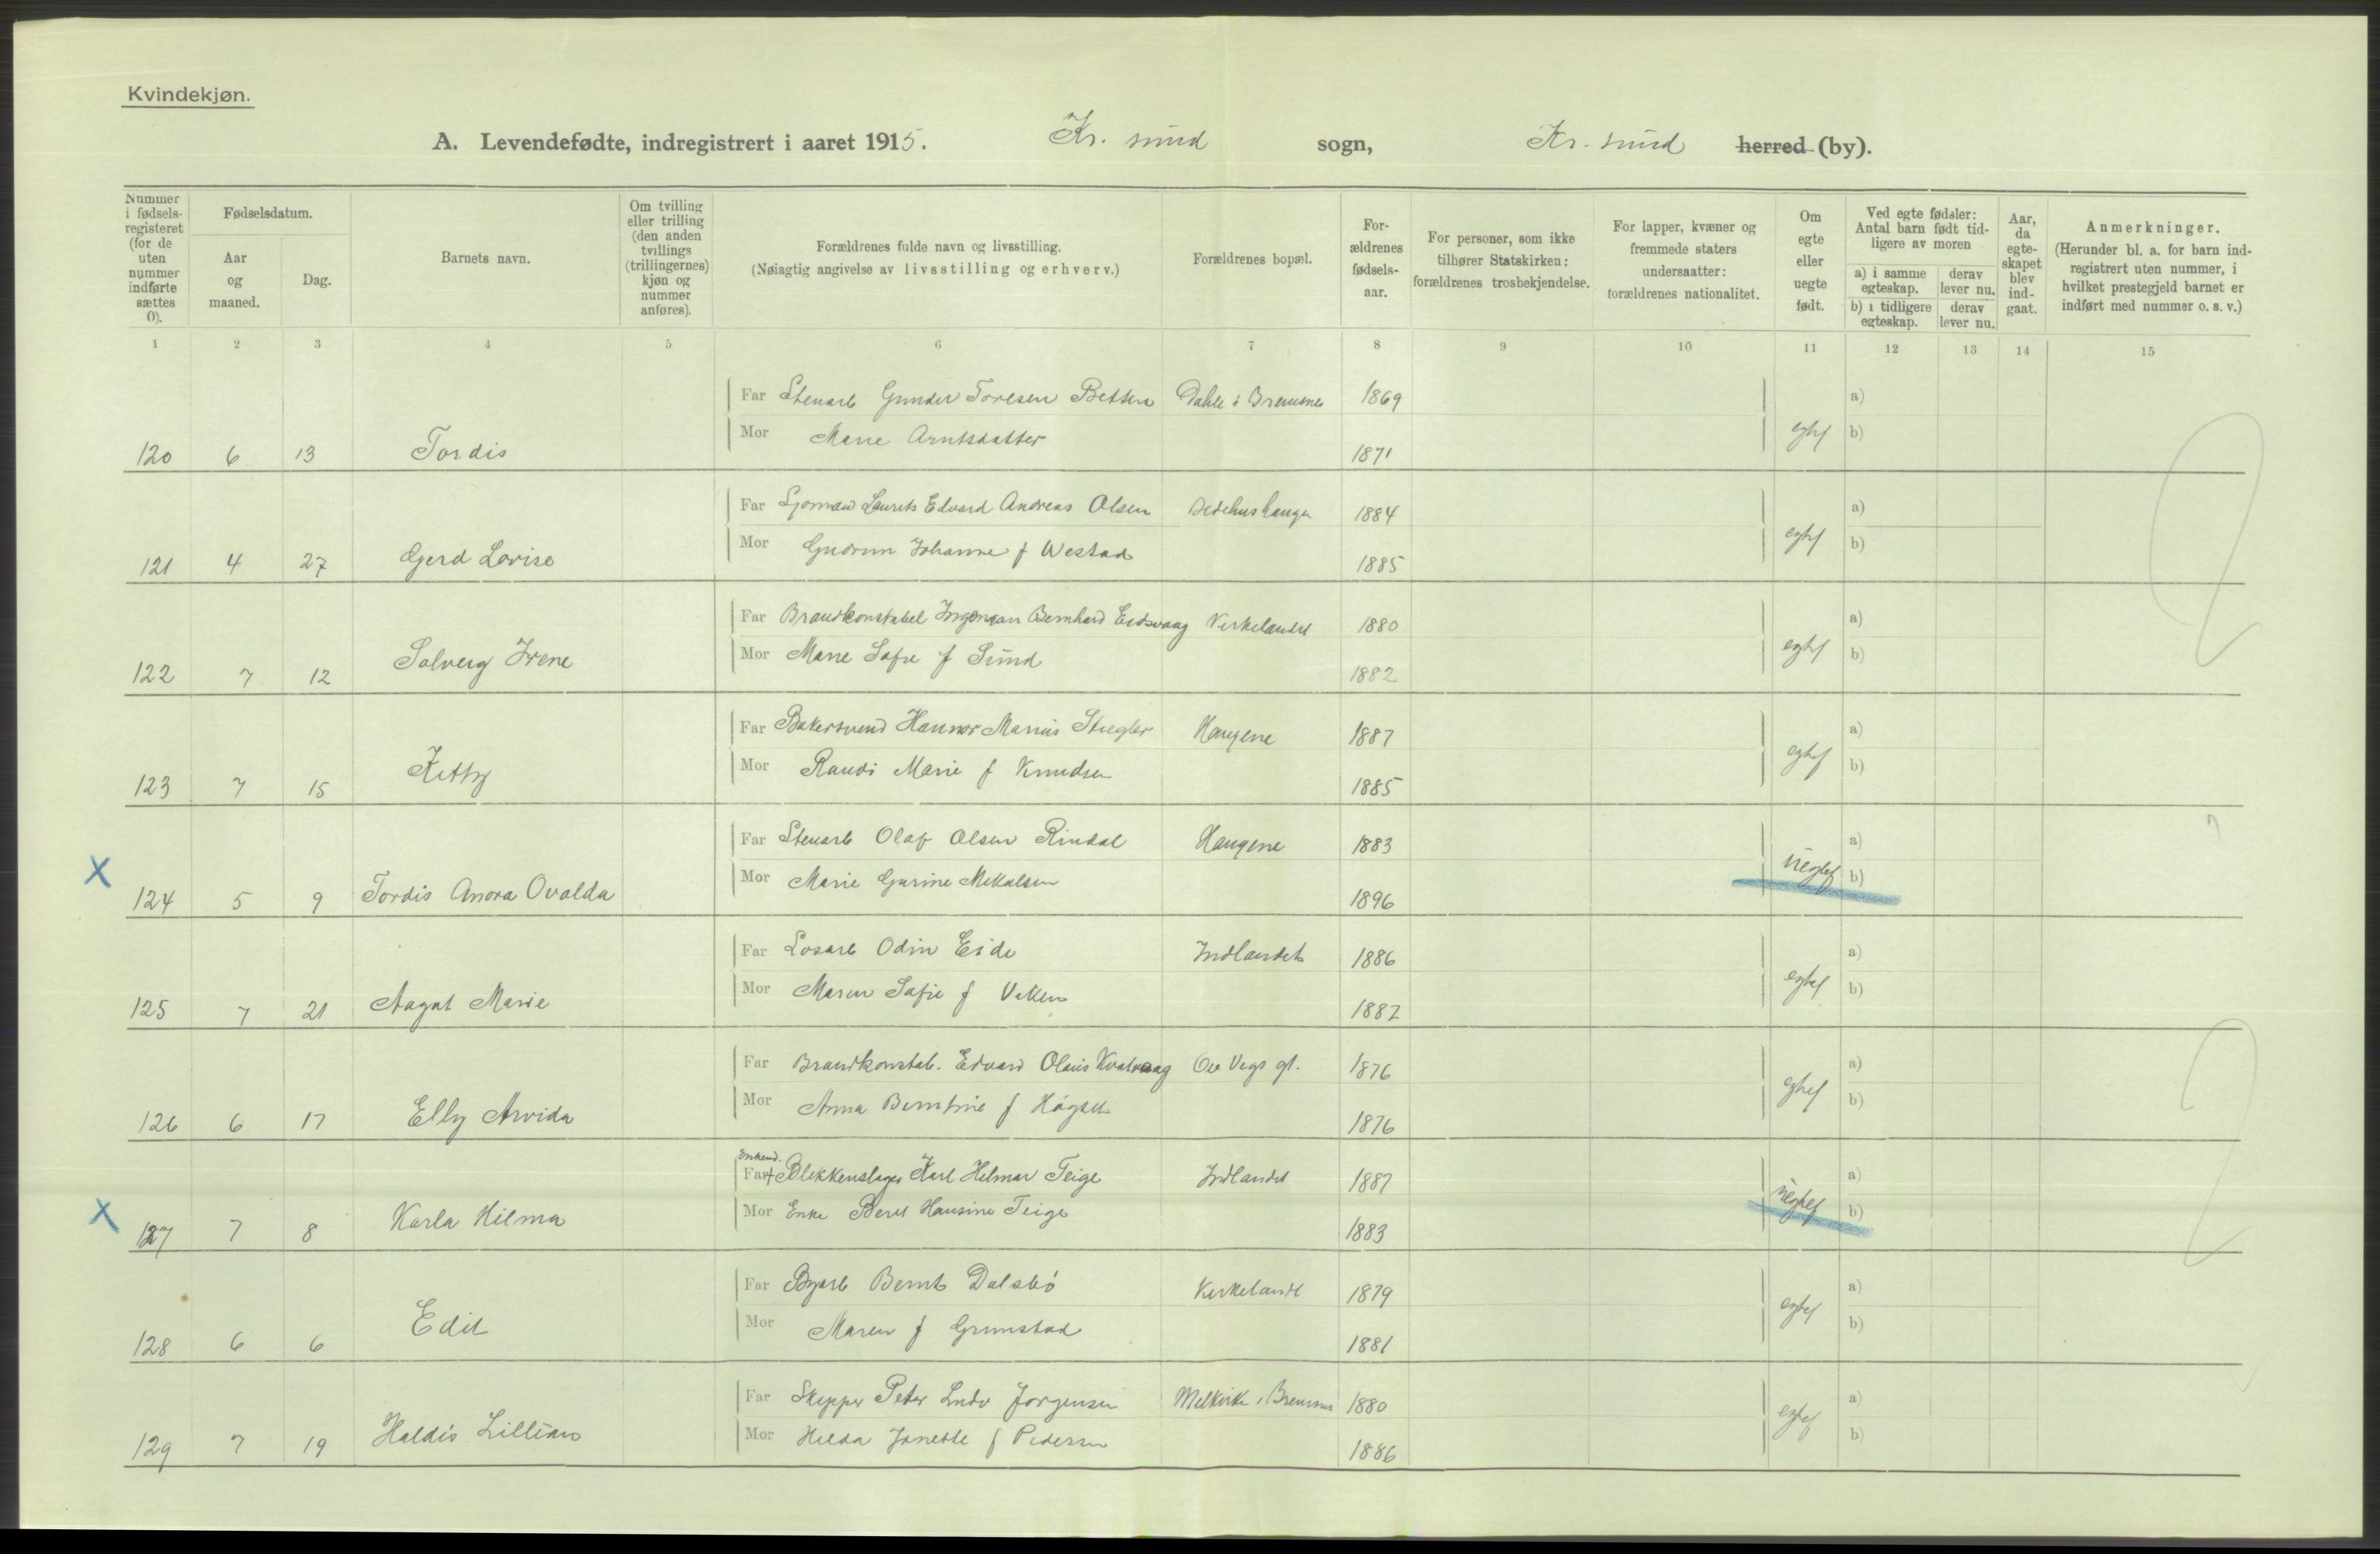 Kvindekjøn.
A. Levendefødte, indregistrert i aaret 1915. Kr. sund sogn, Kr. sund herred (by).
Nummer i fødsels-registeret (for de uten nummer indførte sættes 0).
Fødselsdatum.
Aar og maaned.
Dag.
Barnets navn.
Om tvilling eller trilling (den anden tvillings (trillingernes) kjøn og nummer anføres).
Forældrenes fulde navn og livsstilling.
(Nøiagtig angivelse av livsstilling og erhverv.)
Forældrenes bopæl.
For-ældrenes fødsels-aar.
For personer, som ikke tilhører Statskirken: forældrenes trosbekjendelse.
For lapper, kvæner og fremmede staters undersaatter: forældrenes nationalitet.
Om egte eller uegte født.
Ved egte fødsler: Antal barn født tid-ligere av moren
a) i samme egteskap.
derav lever nu.
b) i tidligere egteskap.
derav lever nu.
Aar, da egte-skapet blev ind-gaat.
Anmerkninger.
(Herunder bl. a. for barn ind-registrert uten nummer, i hvilket prestegjeld barnet er indført med nummer o. s. v.)
1 2 3 4 5 6 7 8 9 10 11 12 13 14 15
Far Stenarb Gunder Toresen Betten Dahle i Bremsnes 1869 a)
Mor Marie Arntsdatter egtef b)
120 6 13 Tordis 1871
Far Sjømand Laurits Edvard Andreas Olsen Bedehushaugen 1884 a)
Mor Gudrun Johanne f Westad egtef b)
121 4 27 Gjerd Lovise 1885
Far Brandkonstabel Ingemar Bernhard Eidsvaag Kirkelandet 1880 a)
Mor Marie Sofie f Sund egtef b)
122 7 12 Solveig Irene 1882
Far Bakersvend Hannor Marius Stiegler Haugene 1887 a)
Mor Randi Marie f Knudsen egtef b)
123 7 15 Kitty 1885
Far Stenarb Olaf Olsen Rindal Haugene 1883 a)
X Mor Marie Gurine Mikalsen uegtef b)
124 5 9 Tordis Anora Ovalda 1896
Far Losarb Odin Eide Indlandet 1886 a)
Mor Maren Sofie f Viken egtef b)
125 7 21 Aagot Marie 1887
Far Brandkonstab. Edvard Olaus Kvalvaag Ole Vigs gt. 1876 a)
Mor Anna Berntine f Høgset egtef b)
126 6 17 Elly Arvida 1876
Far + Blikkenslager Karl Helmar Teige Indlandet 1887 a)
X Mor Enke Beret Hansine Teige uegtef b)
127 7 8 Karla Hilma 1883
Far Byarb Bernt Dalsbø Kirkelandt 1879 a)
Mor Maren f Grimstad egtef b)
128 6 6 Edit 1881
Far Skipper Peter Ludv Jørgensen i Bremsnes 1880 a)
Mor Hilda Janette f Pedersen egtef b)
129 7 19 Haldis Lillian 1886